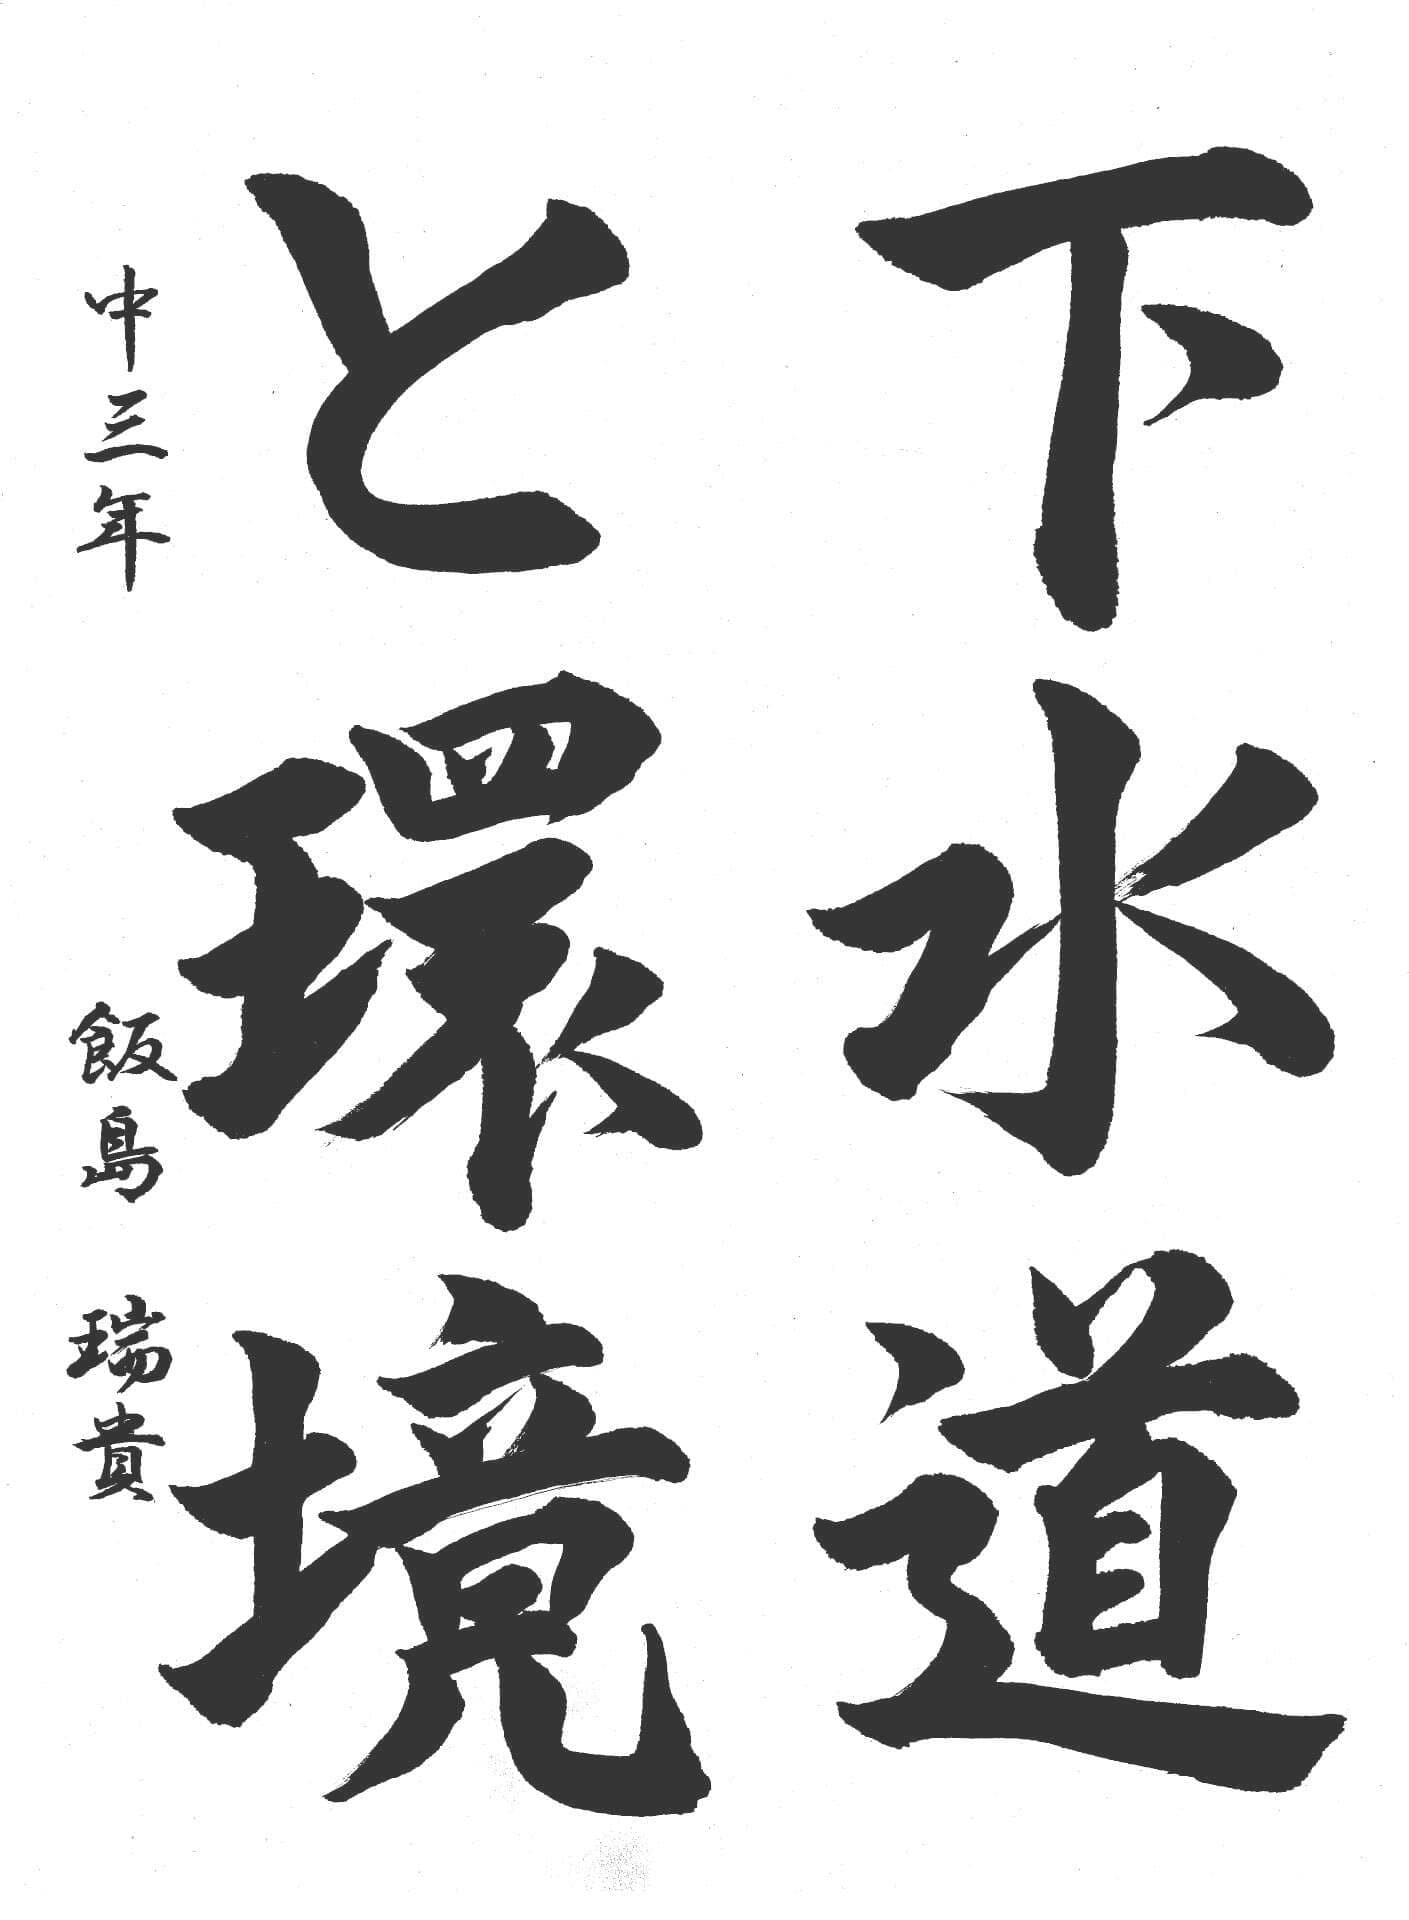 下水道
と環境
中三年 飯島 瑞貴